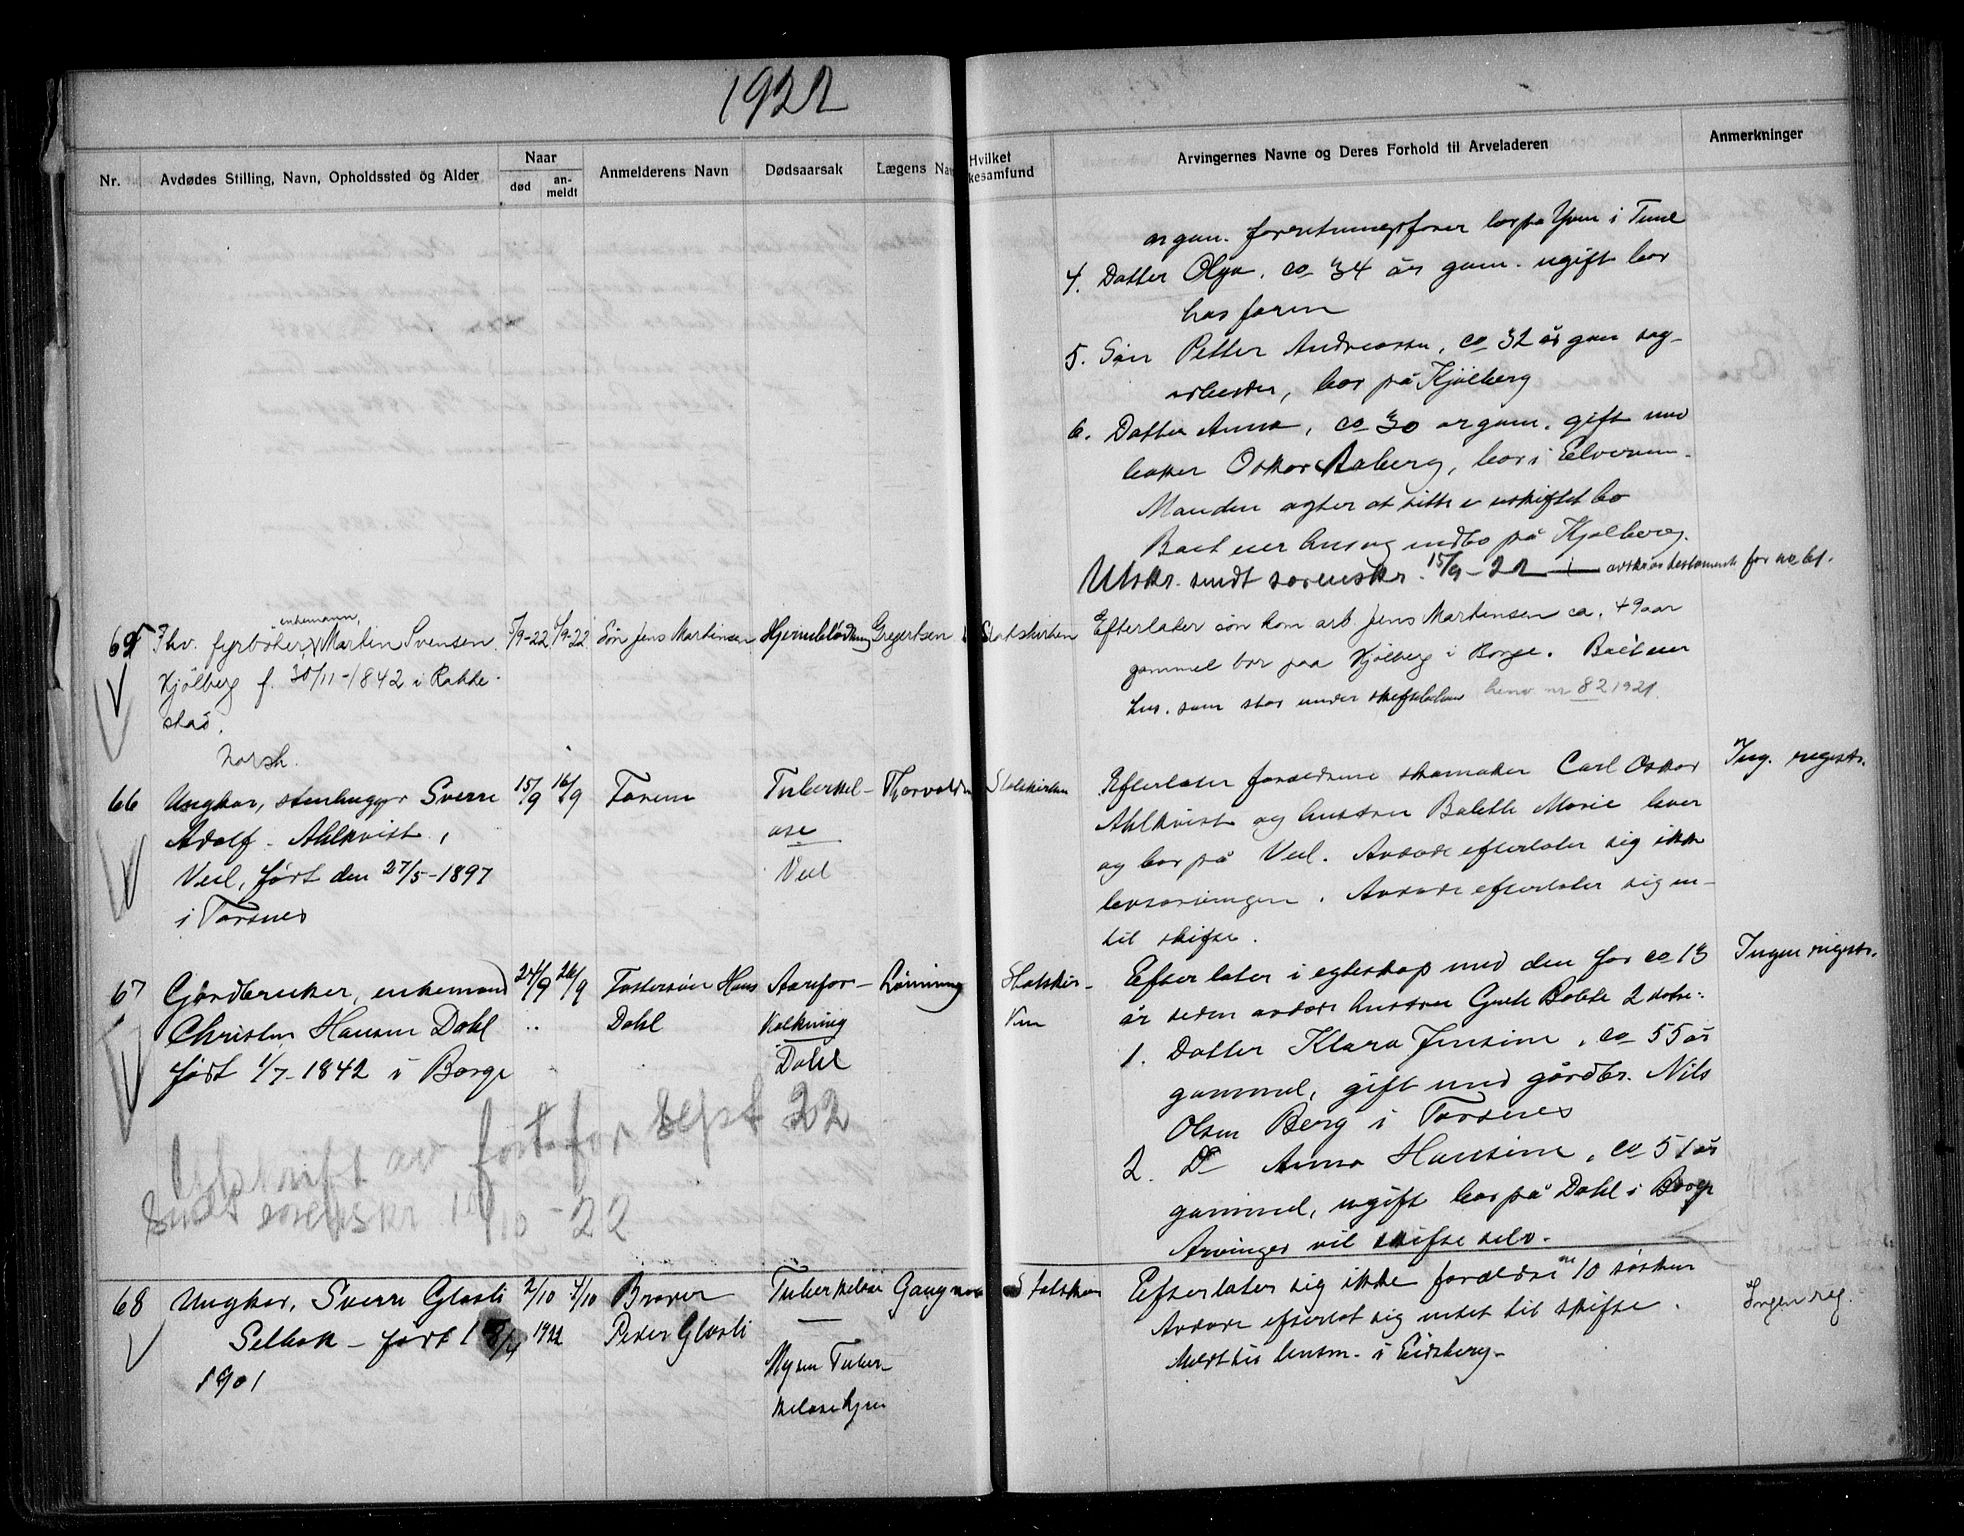 1922
Nr.
Avdødes Stilling, Navn, Opholdssted og Alder
Naar
død
an-
meldt
Anmelderens Navn
Dødsaarsak
Lægens Nav
Hvilket
kesamfund
Arvingernes Navne og Deres Forhold til Arveladeren
Anmerkninger
i Tune
4. Datter Olga, ca 34 år gam. ugift bor
hos faren
5. Søn Petter Andreassen, ca 32 år gam sag-
arbeider, bor på Kjølberg
6. Datter Anna, ca 30 år gam. gift med
baker Oskar Aaberg, bor i Elverum.
Manden agter at sitte i uskiftet bo
Boet eier hus og indbo på Kjølberg.
Utskr. sendt sorenskr. 15/9-22
65
Fhv. fyrbøter, enkemann, Martin Svensen
Kjølberg f. 30/11-1842 i Rakke-
stad.
Norsk.
5/9-22
6/9-22
Søn Jens Martinsen
Hjerneblødning
Gregertsen
Statskirken
Efterlater søn kom arb Jens Martinsen ca. 49 aar
gammel bor paa Kjølberg i Borge. Boet eier
hus. som står under henv nr 82 1921.
66
Ungkar, stenhugger Sverre
Adolf Ahlkvist,
Veel, født den 27/5-1897
i Torsnes
15/9
16/9
Faren
Tuberkel-
ose
Veel
Thorvaldsen
Statskirken
Efterlater forældrene skomaker Carl Oskar
Ahlkvist og hustru Bolette Marie lever
og bor på Veel. Avdøde efterlater sig ikke
livsarvinger. Avdøde efterlater sig en-
til skifte.
Ing. registr.
67
Gårdbruker, enkemand
Christen Hansen Dahl
født 1/7-1842 i Borge
24/9
26/9
Fostersøn Hans
Dahl
Aarefor-
kalkning
Dahl
Lønning
Statskir-
ken
Efterlater i egteskap med den for ca 13
år siden avdøde hustru Grete Bolette 2 døtre:
1. Datter Klara Jensine, ca 55 år
gammel, gift med gårdbr. Nils
Olsen Berg i Torsnes
2. Do Anna Hansine, ca 51 år
gammel, ugift bor på Dahl i Borge
Arvinger vil skifte selv.
Ingen registr.
Utskrift av førtefor sept 22
sendt sorenskr 10/10-22
68
Ungkar, Sverre Glosli
Selbak - født 18/4
1901
2/10
4/10
1922
Broren
Peder Glosli
Tuberkulose
Mysen Tuber-
kulosehjem
Statskir
Efterlater sig ikke forældre 10 søsken
Avdøde efterlot sig intet til skifte.
Meldt til lensm. i Eidsberg-
Ingen reg.